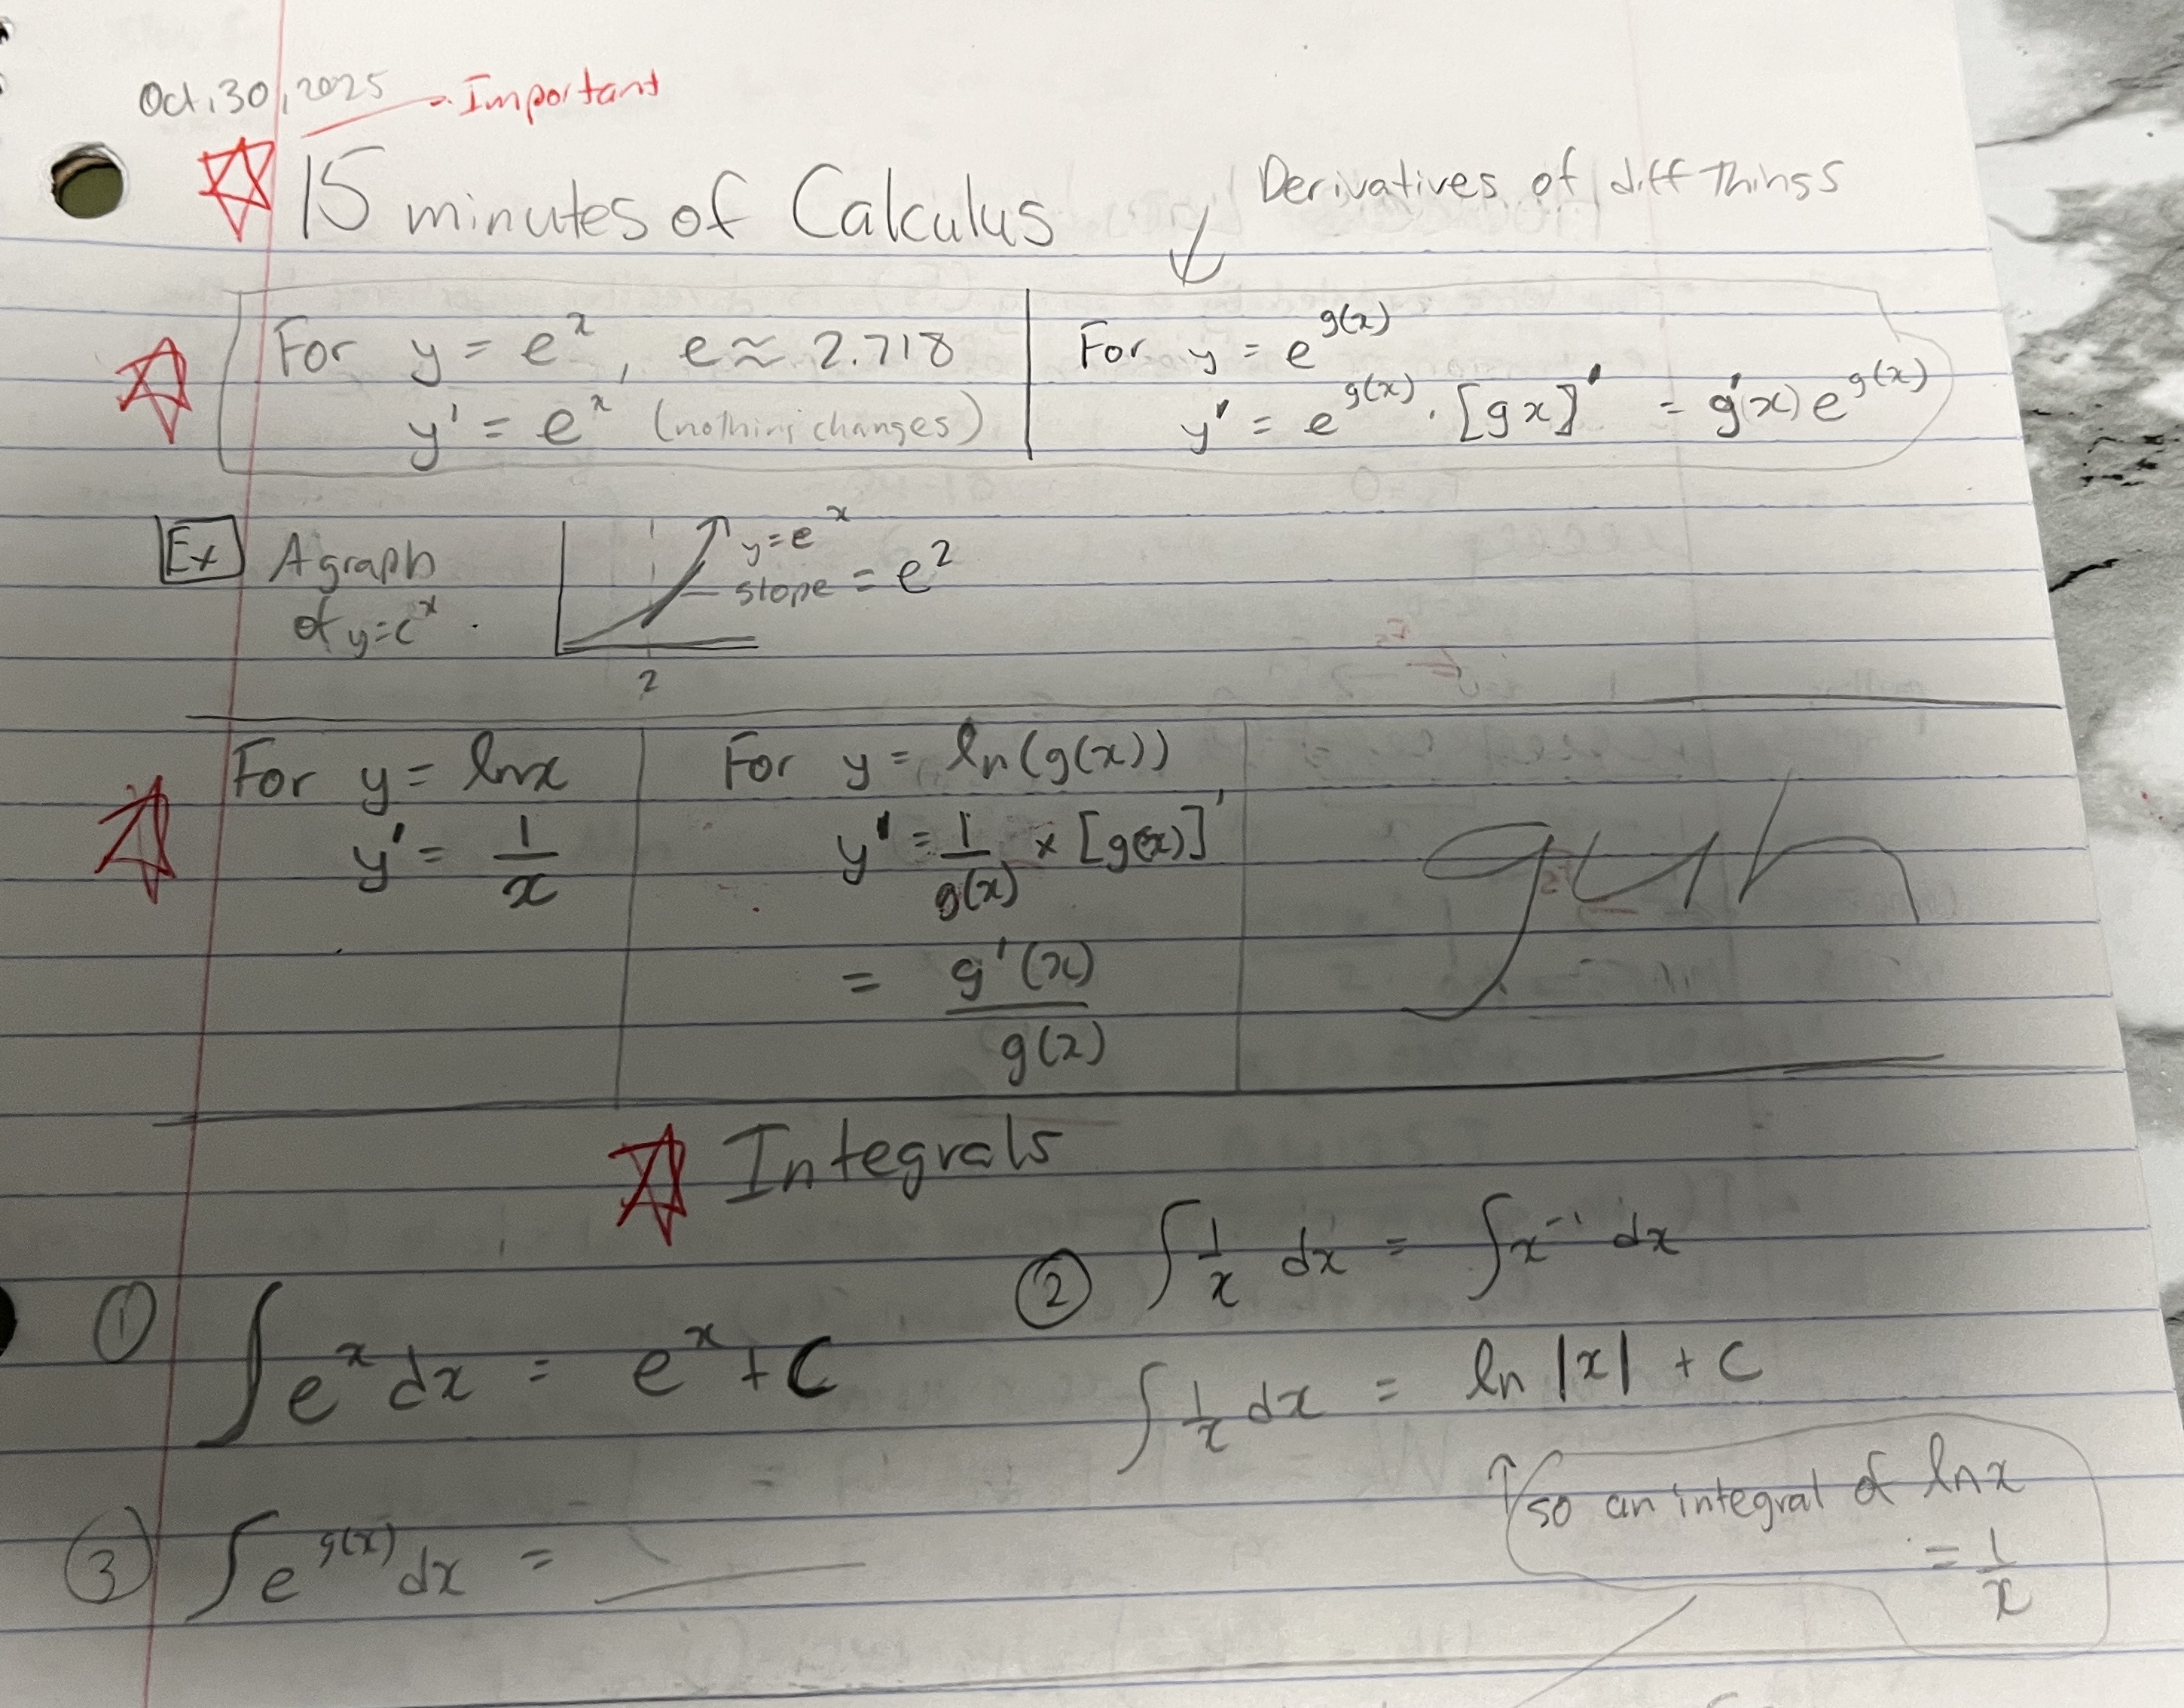 Oct, 30, 2025
Important
15 minutes of Calculus
Derivatives of diff Things
For y = e^x, e ≈ 2.718
y' = e^x (nothing changes)
For y = e^g(x)
y' = e^g(x) · [gx]' = g'(x) e^g(x)
Ex A graph
of y=e^x.
y=e^x
slope = e^2
2
For y = lnx
y' = 1/x
For y = ln(g(x))
y' = 1/g(x) × [g(x)]'
= g'(x)/g(x)
guh
Integrals
① ∫ e^x dx = e^x + C
② ∫ 1/x dx = ∫ x^-1 dx
∫ 1/x dx = ln |x| + C
↑ so an integral of lnx
= 1/x
③ ∫ e^g(x) dx =